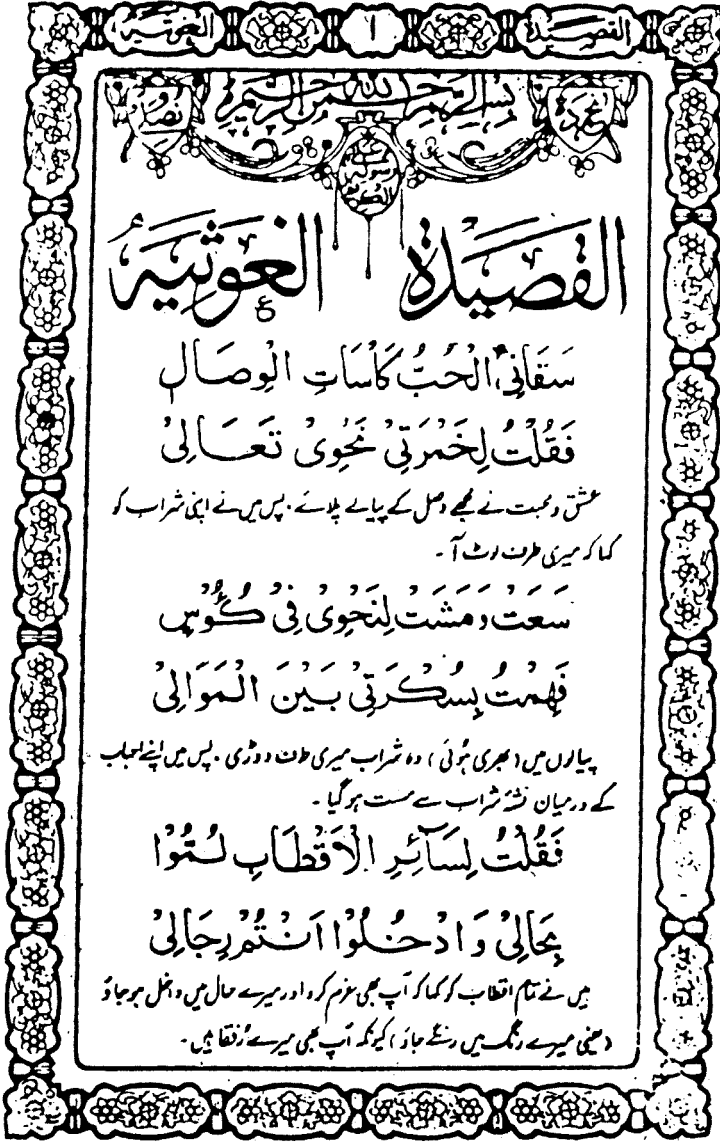 القصيدة ١ الغوثية
بسم الله الرحمن الرحيم
نحمده ونصلي
على رسوله الكريم
القصيدة الغوثيه
سَقَانِی الْحُبُّ كَأْسَاتِ الْوِصَالِ
فَقُلْتُ لِخَمْرَتِیْ نَحْوِیْ تَعَالِیْ
عشق و محبت نے مجھے وصل کے پیالے پلائے۔ پس میں نے اپنی شراب کو
کہا کہ میری طرف لوٹ آ۔
سَعَتْ وَمَشَتْ لِنَحْوِیْ فِیْ كُئُوْسٍ
فَهِمْتُ بِسُكْرَتِیْ بَيْنَ الْمَوَالِیْ
پیالوں میں (بھری ہوئی) وہ شراب میری طرف دوڑی۔ پس میں اپنے احباب
کے درمیان نشۂ شراب سے مست ہو گیا۔
فَقُلْتُ لِسَآئِرِ الْاَقْطَابِ لُمُّوْا
بِحَالِیْ وَادْخُلُوْا اَنْتُمْ رِجَالِیْ
میں نے تمام اقطاب کو کہا کہ آپ بھی عزم کرو اور میرے حال میں داخل ہو جاؤ
(یعنی میرے رنگ میں رنگے جاؤ) کیونکہ آپ بھی میرے رفقا ہیں۔